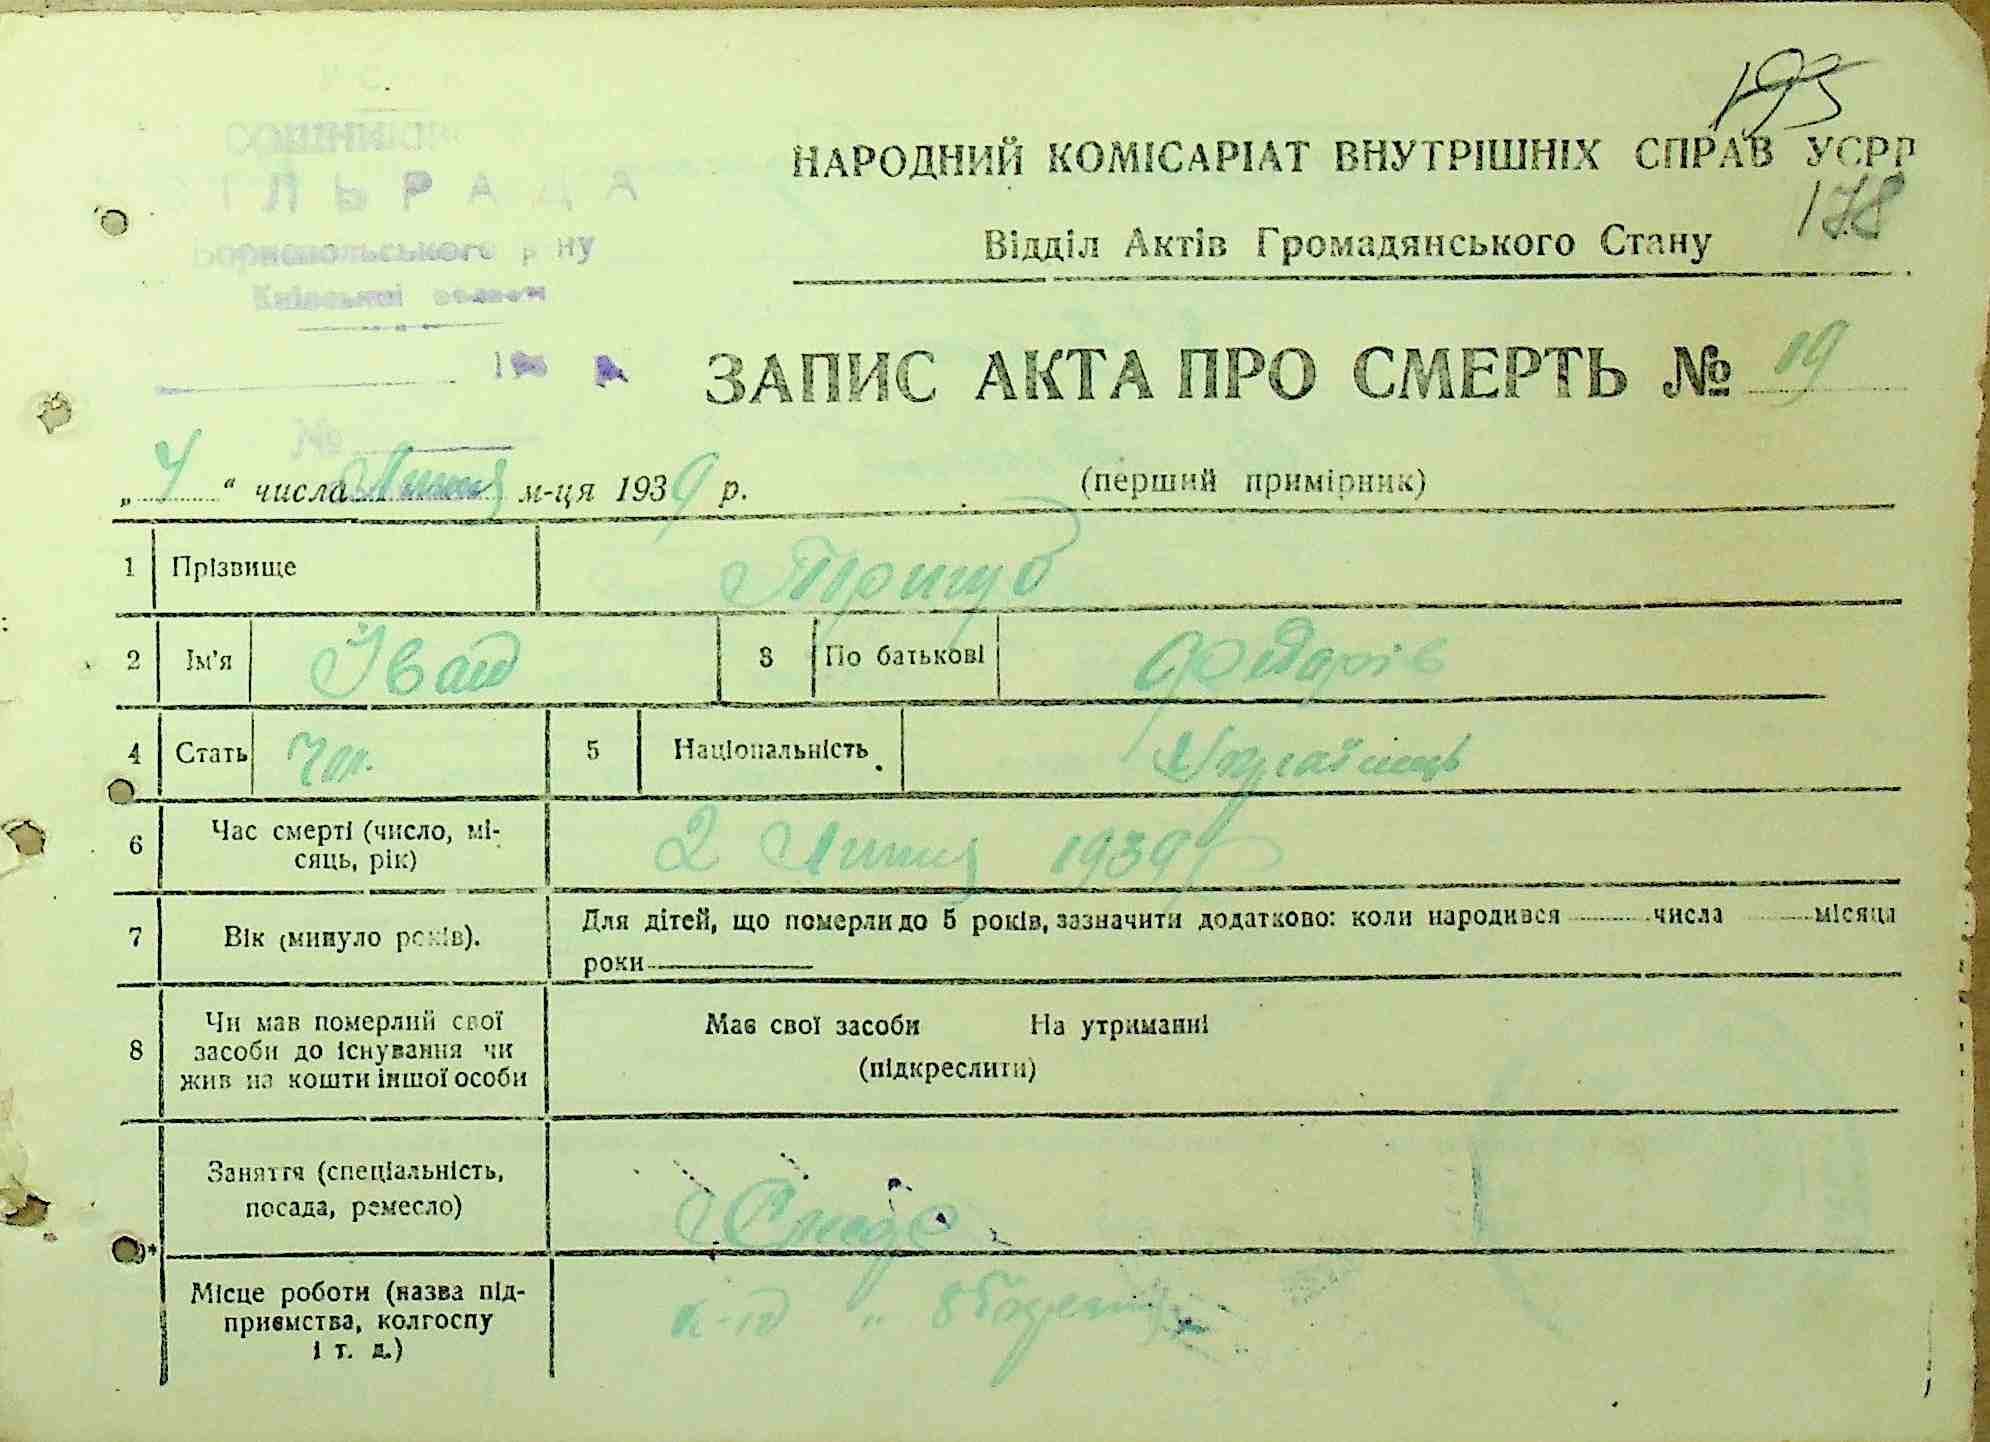 195
НАРОДНИЙ КОМІСАРІАТ ВНУТРІШНІХ СПРАВ УСРР
178
Відділ Актів Громадянського Стану
СІЛЬРАДА
Бориспольського р ну
Київської
ЗАПИС АКТА ПРО СМЕРТЬ № 19
№
„ 4 “ числа Липня м-ця 1939 р. (перший примірник)
1 Прізвище Тригуб
2 Ім'я Іван 3 По батькові
4 Стать Чол. 5 Національність Українець
6 Час смерті (число, мі-
сяць, рік) 2 Липня 1939 р
7 Вік (минуло років). Для дітей, що померли до 5 років, зазначити додатково: коли народився числа місяця
роки
8 Чи мав померлий свої
засоби до існування чи
жив на кошти іншої особи
Має свої засоби На утриманні
(підкреслити)
Заняття (спеціальність,
посада, ремесло)
9*
Місце роботи (назва під-
приємства, колгоспу
і т. д.)
к-гп „ 8